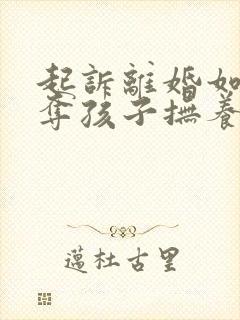 起訴離婚如
奪孩子撫養
邁杜古里